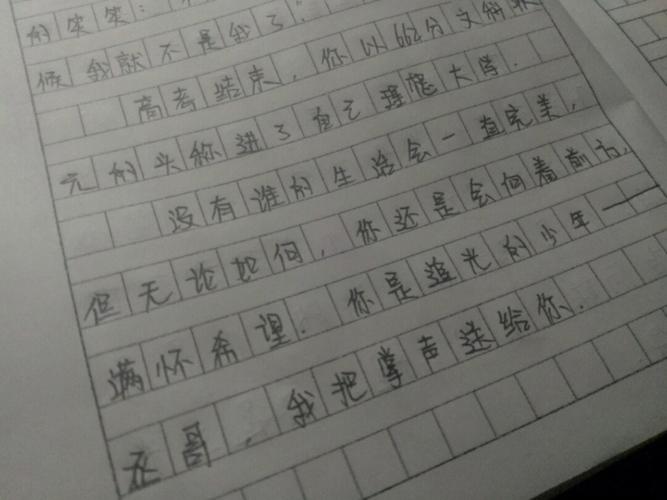 的笑笑：
候我就不是我了."
高考结束，你以662分文科状
元的头称进了自己理想大学.
没有谁的生活会一直完美，
但无论如何，你还是会向着前方，
满怀希望.你是追光的少年——
丞哥，我把掌声送给你.